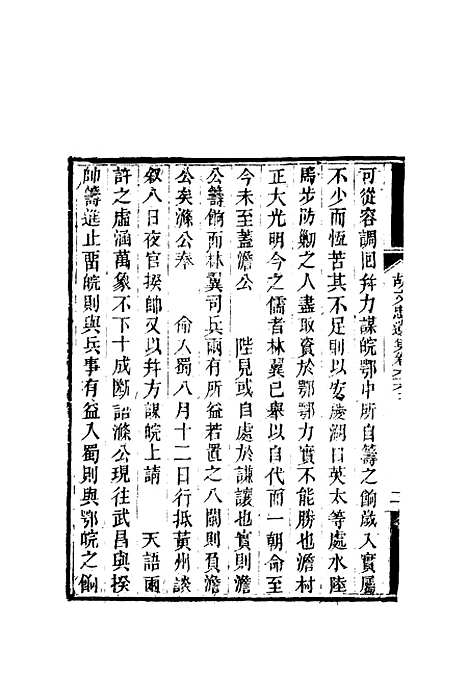 可從容調回幷力謀皖鄂中所自籌之餉歲入實屬
不少而恆苦其不足則以安慶湖口英太等處水陸
馬步防勦之人盡取資於鄂鄂力實不能勝也澹村
正大光明今之儒者林翼已舉以自代而一朝命至
今未至蓋澹公　陛見或自處於謙讓也實則澹
公籌餉而林翼司兵兩有所益若置之八閩則負澹
公矣滌公奉　俞入蜀八月十二日行抵黃州談
叙八日夜官揆帥又以幷力謀皖上請　天語兩
許之虛涵萬象不下十成斷語滌公現往武昌與揆
帥籌進止留皖則與兵事有益入蜀則與鄂皖之餉
胡文忠遺集卷六十